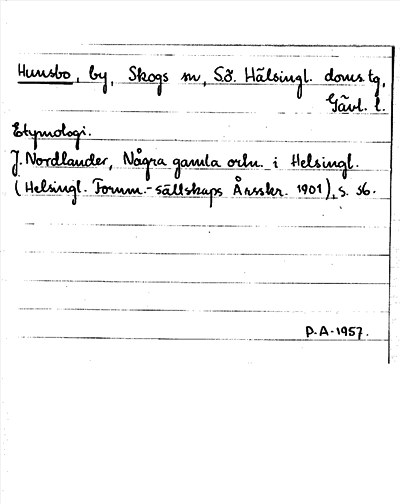 Hunsbo, by, Skogs sn, S.ö. Hälsingl. doms.tg,
Gävl. l.
Etymologi.
J. Nordlander, Några gamla ortn. i Helsingl.
(Helsingl. Fornm.-sällskaps Årsskr. 1901), s. 56.
P.A. 1957.